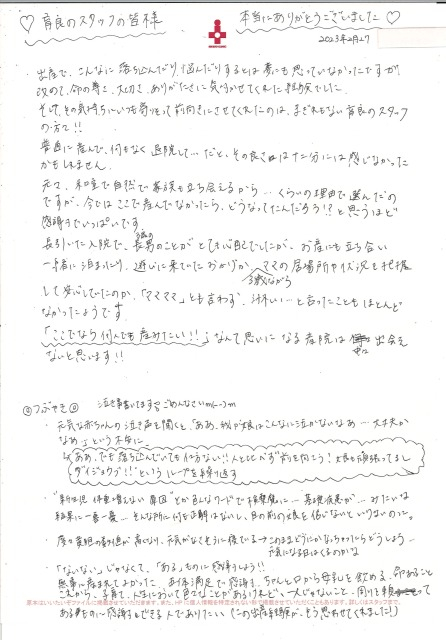 ♡ 育良のスタッフの皆様
本当にありがとうございました ♡
2023年2月27
出産で、こんなに落ち込んだり、悩んだりするとは夢にも思っていなかったですが
改めて、命の尊さ、大切さ、ありがたさに気付かせてくれた経験でした。
そして、その気持ちにいつも寄りそって前向きにさせてくれたのは、まぎれもない育良のスタッフ
の方で!!
普通に産んで、何もなく退院して…だと、その良さは十二分には感じなかった
かもしれません。
元々、和室で自然で家族も立ち会えるから…くらいの理由で選んだの
ですが、今ではここで産んでなかったら、どうなってたんだろう!?と思うほど
感謝でいっぱいです。
長引いた入院で、長男のことがとても心配でしたが、お産にも立ち会い
一緒に泊まったり、遊びに来ていたおかげか、ママの居場所や状況も把握
して安心していたのか、「ママママ」とも言わず、淋しい…と言ったこともほとんど
なかったようです。
「ここでなら何人でも産みたい!!」なんて思いになる産院は中々出会え
ないと思います!!
つぶやき
泣き事書いてますがごめんなさいm(--)m
・元気な赤ちゃんの泣き声を聞くと、「ああ、我が娘はこんなに泣かないなあ…大丈夫か
なあ」という不安に
↳ああ、でも落ち込んでいても仕方ない!!人と比べず前を向こう!娘も頑張ってるし
ダイジョウブ!!というループを繰り返す
・"新生児 体重増えない 原因"とか色んなワードで検索魔に…基礎疾患が…みたいな
結果に一喜一憂…そんな所に何も正解はないし、目の前の娘を信じないといけないのに。
・度々黄疸の数値が高くなり、元気がなさそうに寝ている→このままどうにかなっちゃったらどうしよう…
元気になる日はくるのかな
・「ないない」じゃなくて、「ある」ものに感謝しよう!!
無事に産まれてよかった、お体満足で感謝、ちゃんと口から母乳を飲める、命あること
これから、子育て、人生において色々なことがあるけれど、一人じゃないこと、周りを頼って
あるものに感謝もできる人でありたい(この出産経験が、そう思わせてくれました!)